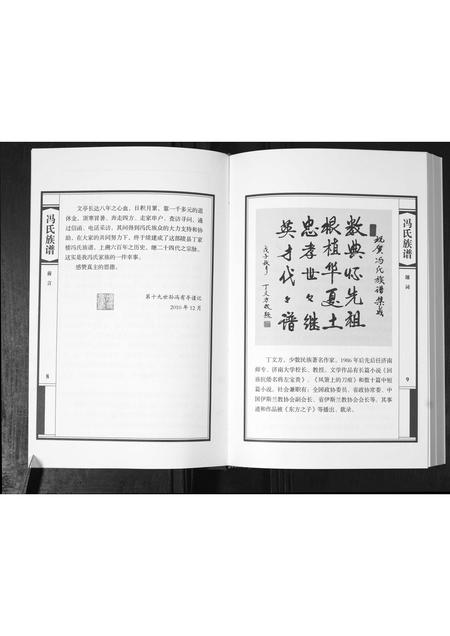 冯氏族谱
前言
8
文亭长达八年之心血，日积月累，靠一千多元的退
休金，顶寒冒暑，奔走四方，走家串户，查访寻问，通
过信函、电话采访，其间得到冯氏族众的大力支持和协
助，在大家的共同努力下，终于续建成了这部陵县丁家
楼冯氏族谱，上溯六百年之历史，继二十四代之宗脉，
这实是我冯氏家族的一件幸事。
感赞真主的恩德。
第十九世孙冯有亭谨记
2010年12月
祝贺冯氏族谱集成
数典怀先祖
根植华夏土
忠孝世々继
英才代々谱
戊子秋月
丁文方敬题
丁文方，少数民族著名作家。1986年后先后任济南
师专、济南大学校长、教授。文学作品有长篇小说《回
族抗倭名将左宝贵》、《凤箫上的刀痕》和数十篇中短
篇小说。社会兼职有：全国政协委员、省政协常委、中
国伊斯兰教协会副会长、省伊斯兰教协会会长等。其事
迹和作品被《东方之子》等播出、载录。
冯氏族谱
题词
9